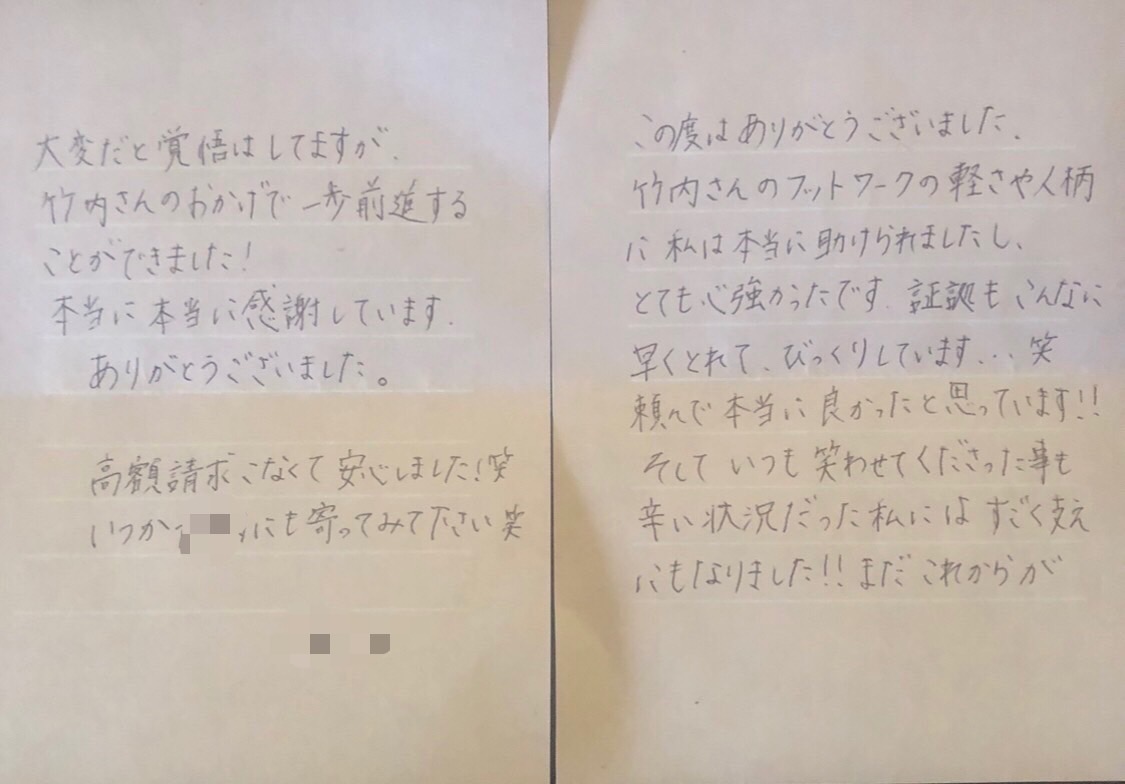 この度はありがとうございました.
竹内さんのフットワークの軽さや人柄
に私は本当に助けられましたし、
とても心強かったです.証拠もこんなに
早くとれて、びっくりしています...笑
頼んで本当に良かったと思っています!!
そしていつも笑わせてくださった事も
辛い状況だった私にはすごく支え
にもなりました!!まだこれからが
大変だと覚悟はしてますが、
竹内さんのおかげで一歩前進する
ことができました!
本当に本当に感謝しています.
ありがとうございました。
高額請求こなくて安心しました!笑
いつか
にも寄ってみて下さい笑